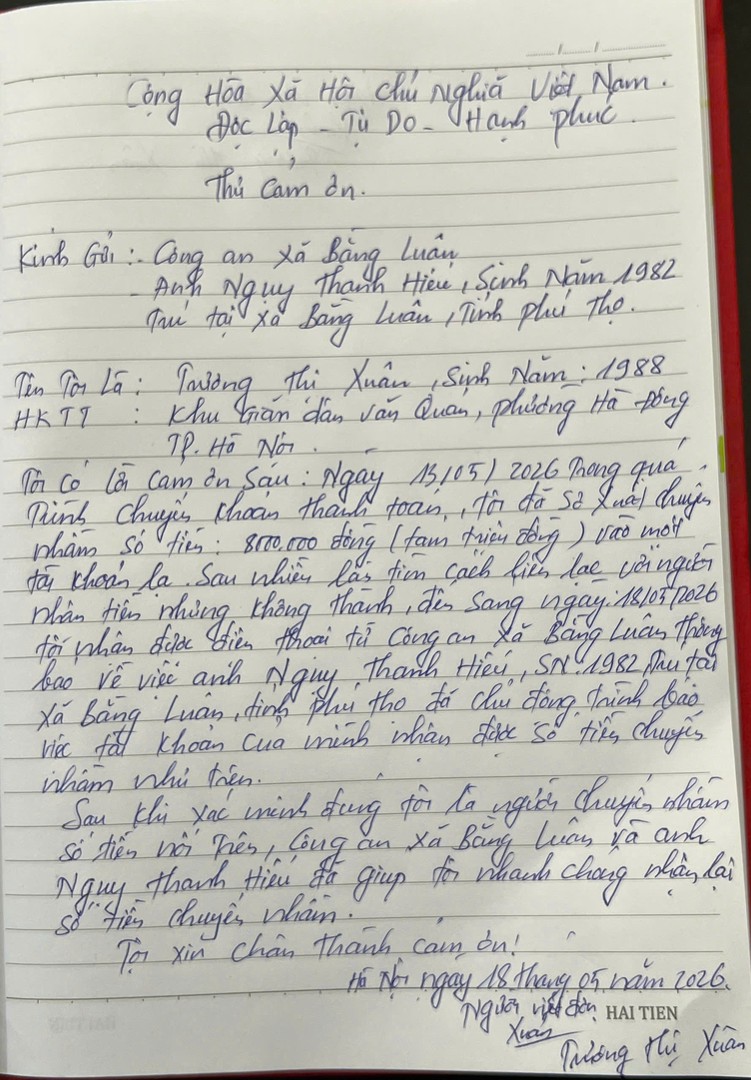 Cộng Hòa Xã Hội chủ Nghiã Việt Nam.
Độc Lập - Tự Do - Hạnh phúc.
Thư Cảm ơn.
Kính Gửi : - Công an xã Bằng Luân
- Anh Ngụy Thanh Hiếu, Sinh Năm 1982
Trú tại xã Bằng Luân, Tỉnh phú Thọ.
Tên Tôi Là : Trương Thị Xuân, Sinh Năm : 1988
HKTT : Khu Giãn dân Văn Quán, phường Hà Đông
TP. Hà Nội.
Tôi có lời cảm ơn sau : Ngày 13/05/2026 Trong quá
Trình chuyển khoản thanh toán, tôi đã sơ xuất chuyển
nhầm số tiền : 8000.000 đồng (tám triệu đồng) vào một
tài khoản lạ. Sau nhiều lần tìm cách liên lạc với người
nhận tiền nhưng không thành, đến sáng ngày 18/05/2026
tôi nhận được điện thoại từ Công an xã Bằng Luân thông
báo về việc anh Ngụy Thanh Hiếu, SN: 1982 Trú tại
xã Bằng Luân, tỉnh phú thọ đã chủ động trình báo
việc tài khoản của mình nhận được số tiền chuyển
nhầm như trên.
Sau khi xác minh đúng tôi là người chuyển nhầm
số tiền nói trên, Công an xã Bằng Luân và anh
Ngụy Thanh Hiếu đã giúp tôi nhanh chóng nhận lại
số tiền chuyển nhầm.
Tôi xin chân thành cảm ơn!
Hà Nội ngày 18 tháng 05 năm 2026.
Người viết đơn
HAI TIEN
Xuân
Trương Thị Xuân